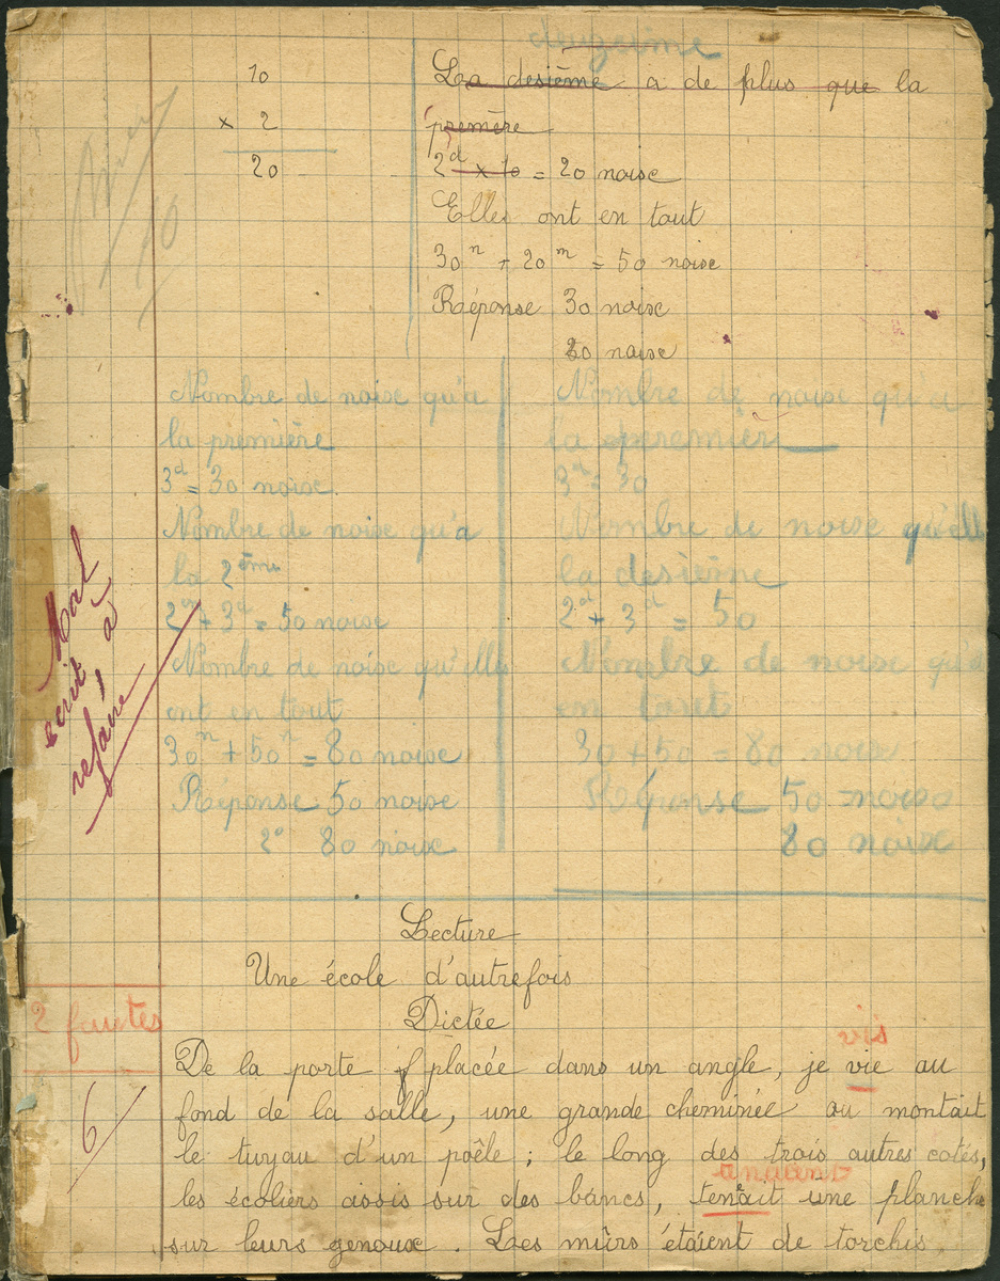 deuxième
10
× 2
20
La desième a de plus que la
première
2d × 10 = 20 noise
Elles ont en tout
30n + 20m = 50 noise
Réponse 30 noise
20 noise
Nombre de noise qu'a
la première
3d = 30 noise
Nombre de noise qu'a
la 2ème
2d + 3d = 50 noise
Nombre de noise qu'elle
ont en tout
30n + 50n = 80 noise
Réponse 50 noise
2° 80 noise
Nombre de noise qu'a
la premièr
3d = 30
Nombre de noise qu'elle
la desième
2d + 3d = 50
Nombre de noise qu'a
en tout
30 + 50 = 80 noise
Réponse 50 noise
80 noise
Mal
écrit, à
refaire
Lecture
Une école d'autrefois
Dictée
2 fautes
6
vis
De la porte placée dans un angle, je vie au
fond de la salle, une grande cheminée ou montait
le tuyau d'un poêle ; le long des trois autres cotés,
les écoliers assis sur des bancs, tenait une planche
sur leurs genoux. Les mûrs étaient de torchis